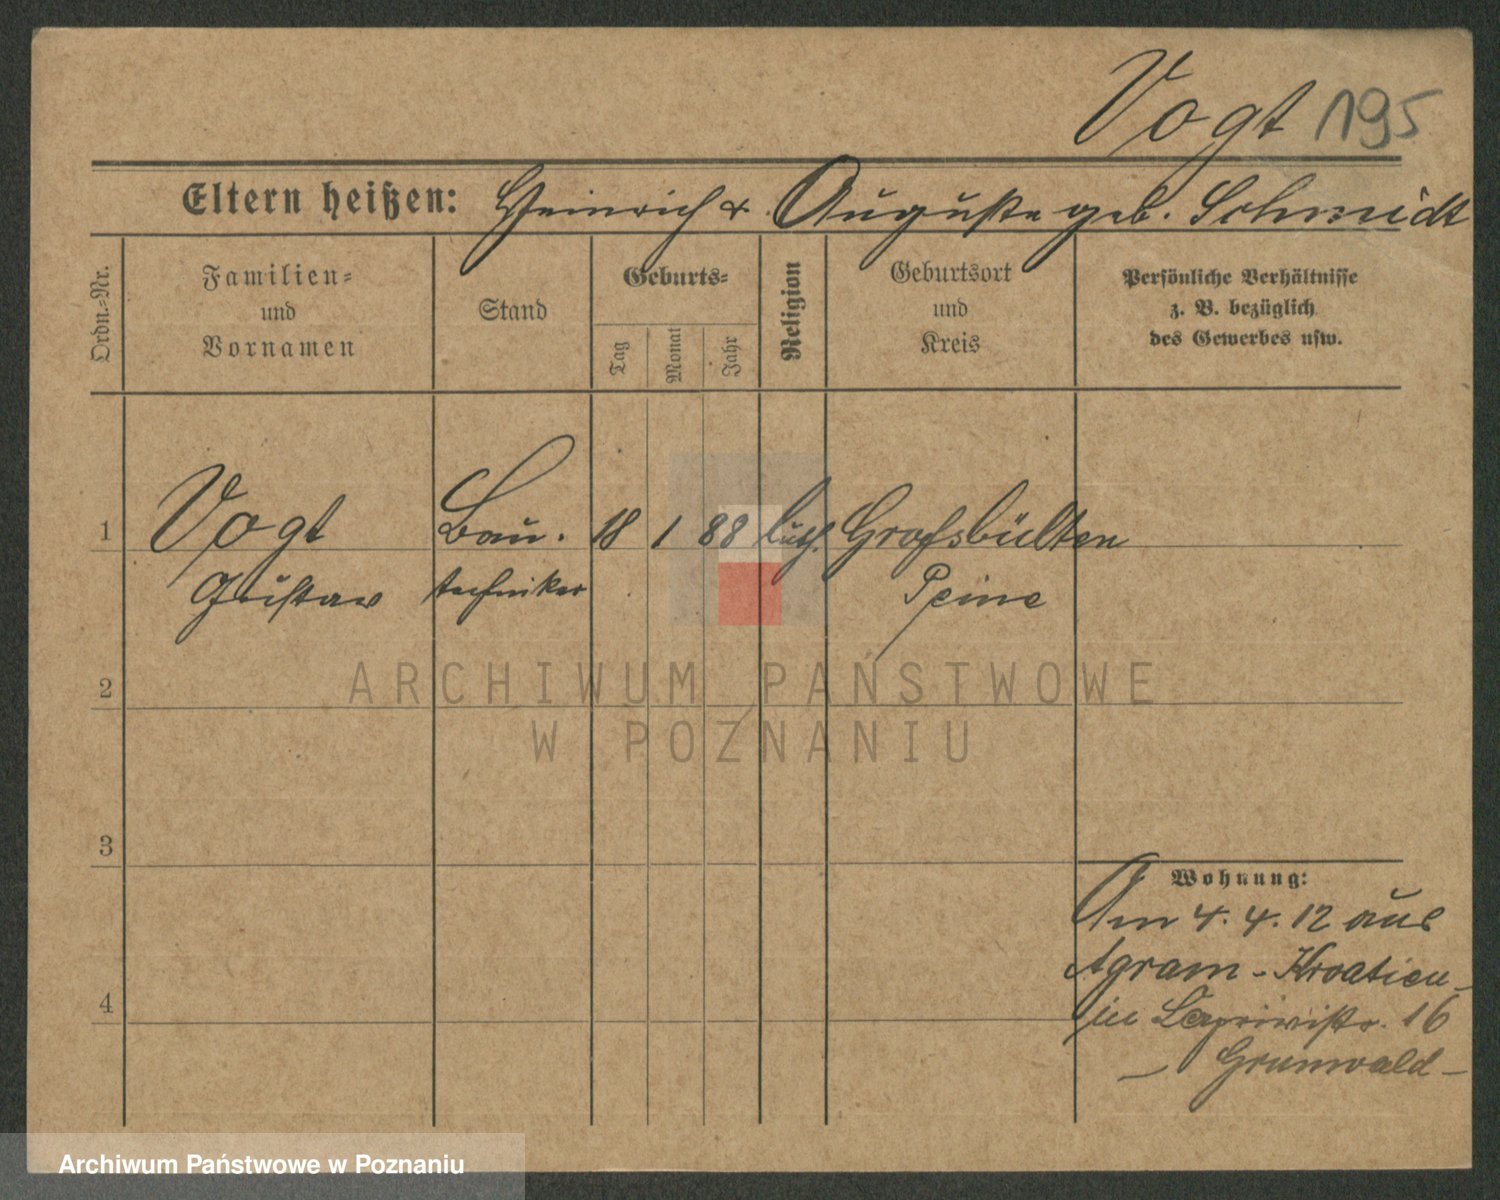 Vogt 195
Eltern heißen: Heinrich & Auguste geb. Schmidt
Ordn.-Nr.
Familien-
und
Vornamen
Stand
Geburts-
Tag
Monat
Jahr
Religion
Geburtsort
und
Kreis
Persönliche Verhältnisse
z. B. bezüglich
des Gewerbes usw.
1 Vogt Bau. 18 1 88 luth. Grofsbülten
Gustav techniker Peine
2
ARCHIWUM PAŃSTWOWE
W POZNANIU
3
Wohnung:
Am 4. 4. 12 aus
Agram - Kroatien -
in Caprivistr. 16
4
- Grunwald -
Archiwum Państwowe w Poznaniu